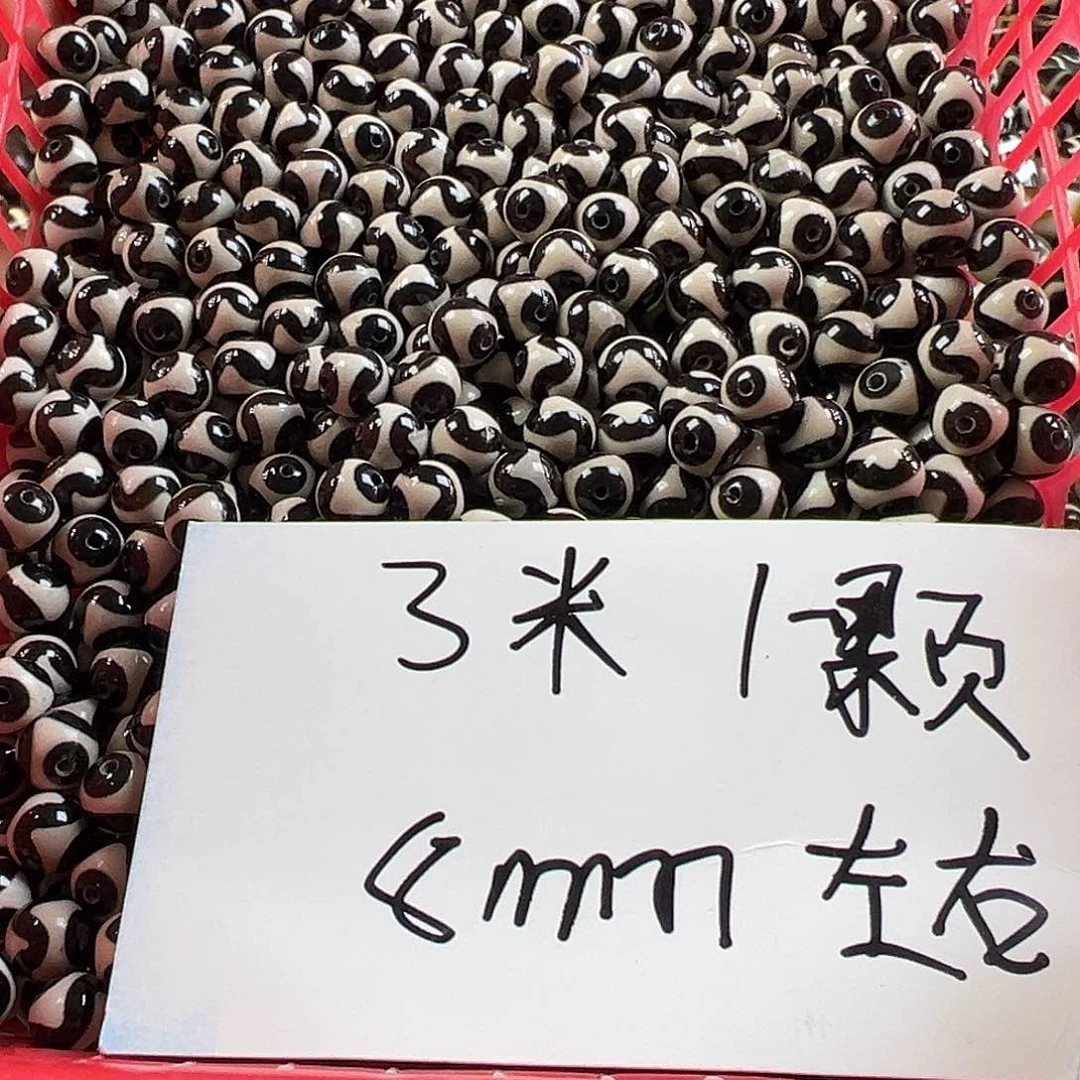 3米 1颗
8mm 左右